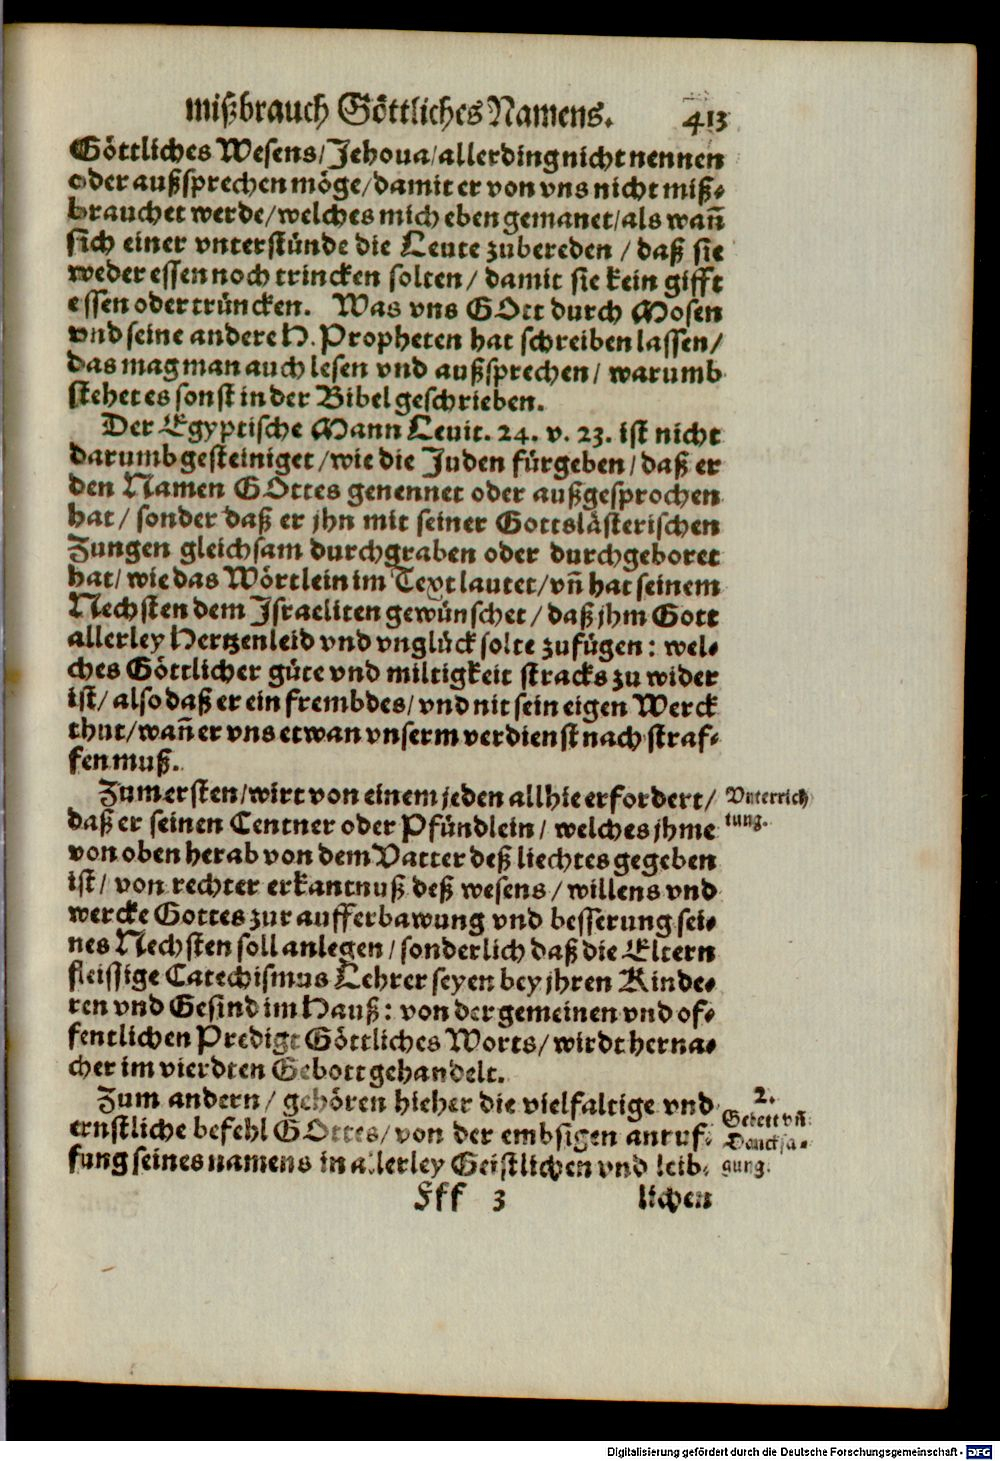 mißbrauch Göttliches Namens. 413
Göttliches Wesens/Jehoua/allerding nicht nennen
oder außsprechen möge/damit er von vns nicht miß-
brauchet werde/welches mich eben gemanet/als wañ
sich einer vnterstünde die Leute zubereden / daß sie
weder essen noch trincken solten/ damit sie kein gifft
essen oder trüncken. Was vns GOtt durch Mosen
vnd seine andere H. Propheten hat schreiben lassen/
das mag man auch lesen vnd außsprechen/ warumb
stehet es sonst in der Bibel geschrieben.
Der Egyptische Mann Leuit. 24. v. 23. ist nicht
darumb gesteiniget/wie die Juden fürgeben/daß er
den Namen GOttes genennet oder außgesprochen
hat/ sonder daß er jhn mit seiner Gottslästerischen
Zungen gleichsam durchgraben oder durchgeboret
hat/ wie das Wörtlein im Text lautet/vñ hat seinem
Nechsten dem Israeliten gewünschet/ daß jhm Gott
allerley Hertzenleid vnd vnglück solte zufügen: wel-
ches Göttlicher güte vnd miltigkeit stracks zu wider
ist/ also daß er ein frembdes/ vnd nit sein eigen Werck
thut/wañ er vns etwan vnserm verdienst nach straf-
fen muß.
Zum ersten/wirt von einem jeden allhie erfordert/
Vnterrich
daß er seinen Centner oder Pfündlein/ welches jhme
tung.
von oben herab von dem Vatter deß liechtes gegeben
ist/ von rechter erkantnuß deß wesens/ willens vnd
wercke Gottes zur aufferbawung vnd besserung sei-
nes Nechsten soll anlegen/sonderlich daß die Eltern
fleissige Catechismus Lehrer seyen bey jhren Kinde-
ren vnd Gesind im Hauß: von der gemeinen vnd of-
fentlichen Predigt Göttliches Worts/ wirdt herna-
cher im vierdten Gebott gehandelt.
Zum andern/ gehören hieher die vielfaltige vnd
2.
Gebett vñ
ernstliche befehl GOttes/von der embsigen anruf-
Dancksa-
fung seines namens in allerley Geistlichen vnd leib-
gung.
Fff 3 lichen
Digitalisierung gefördert durch die Deutsche Forschungsgemeinschaft - DFG